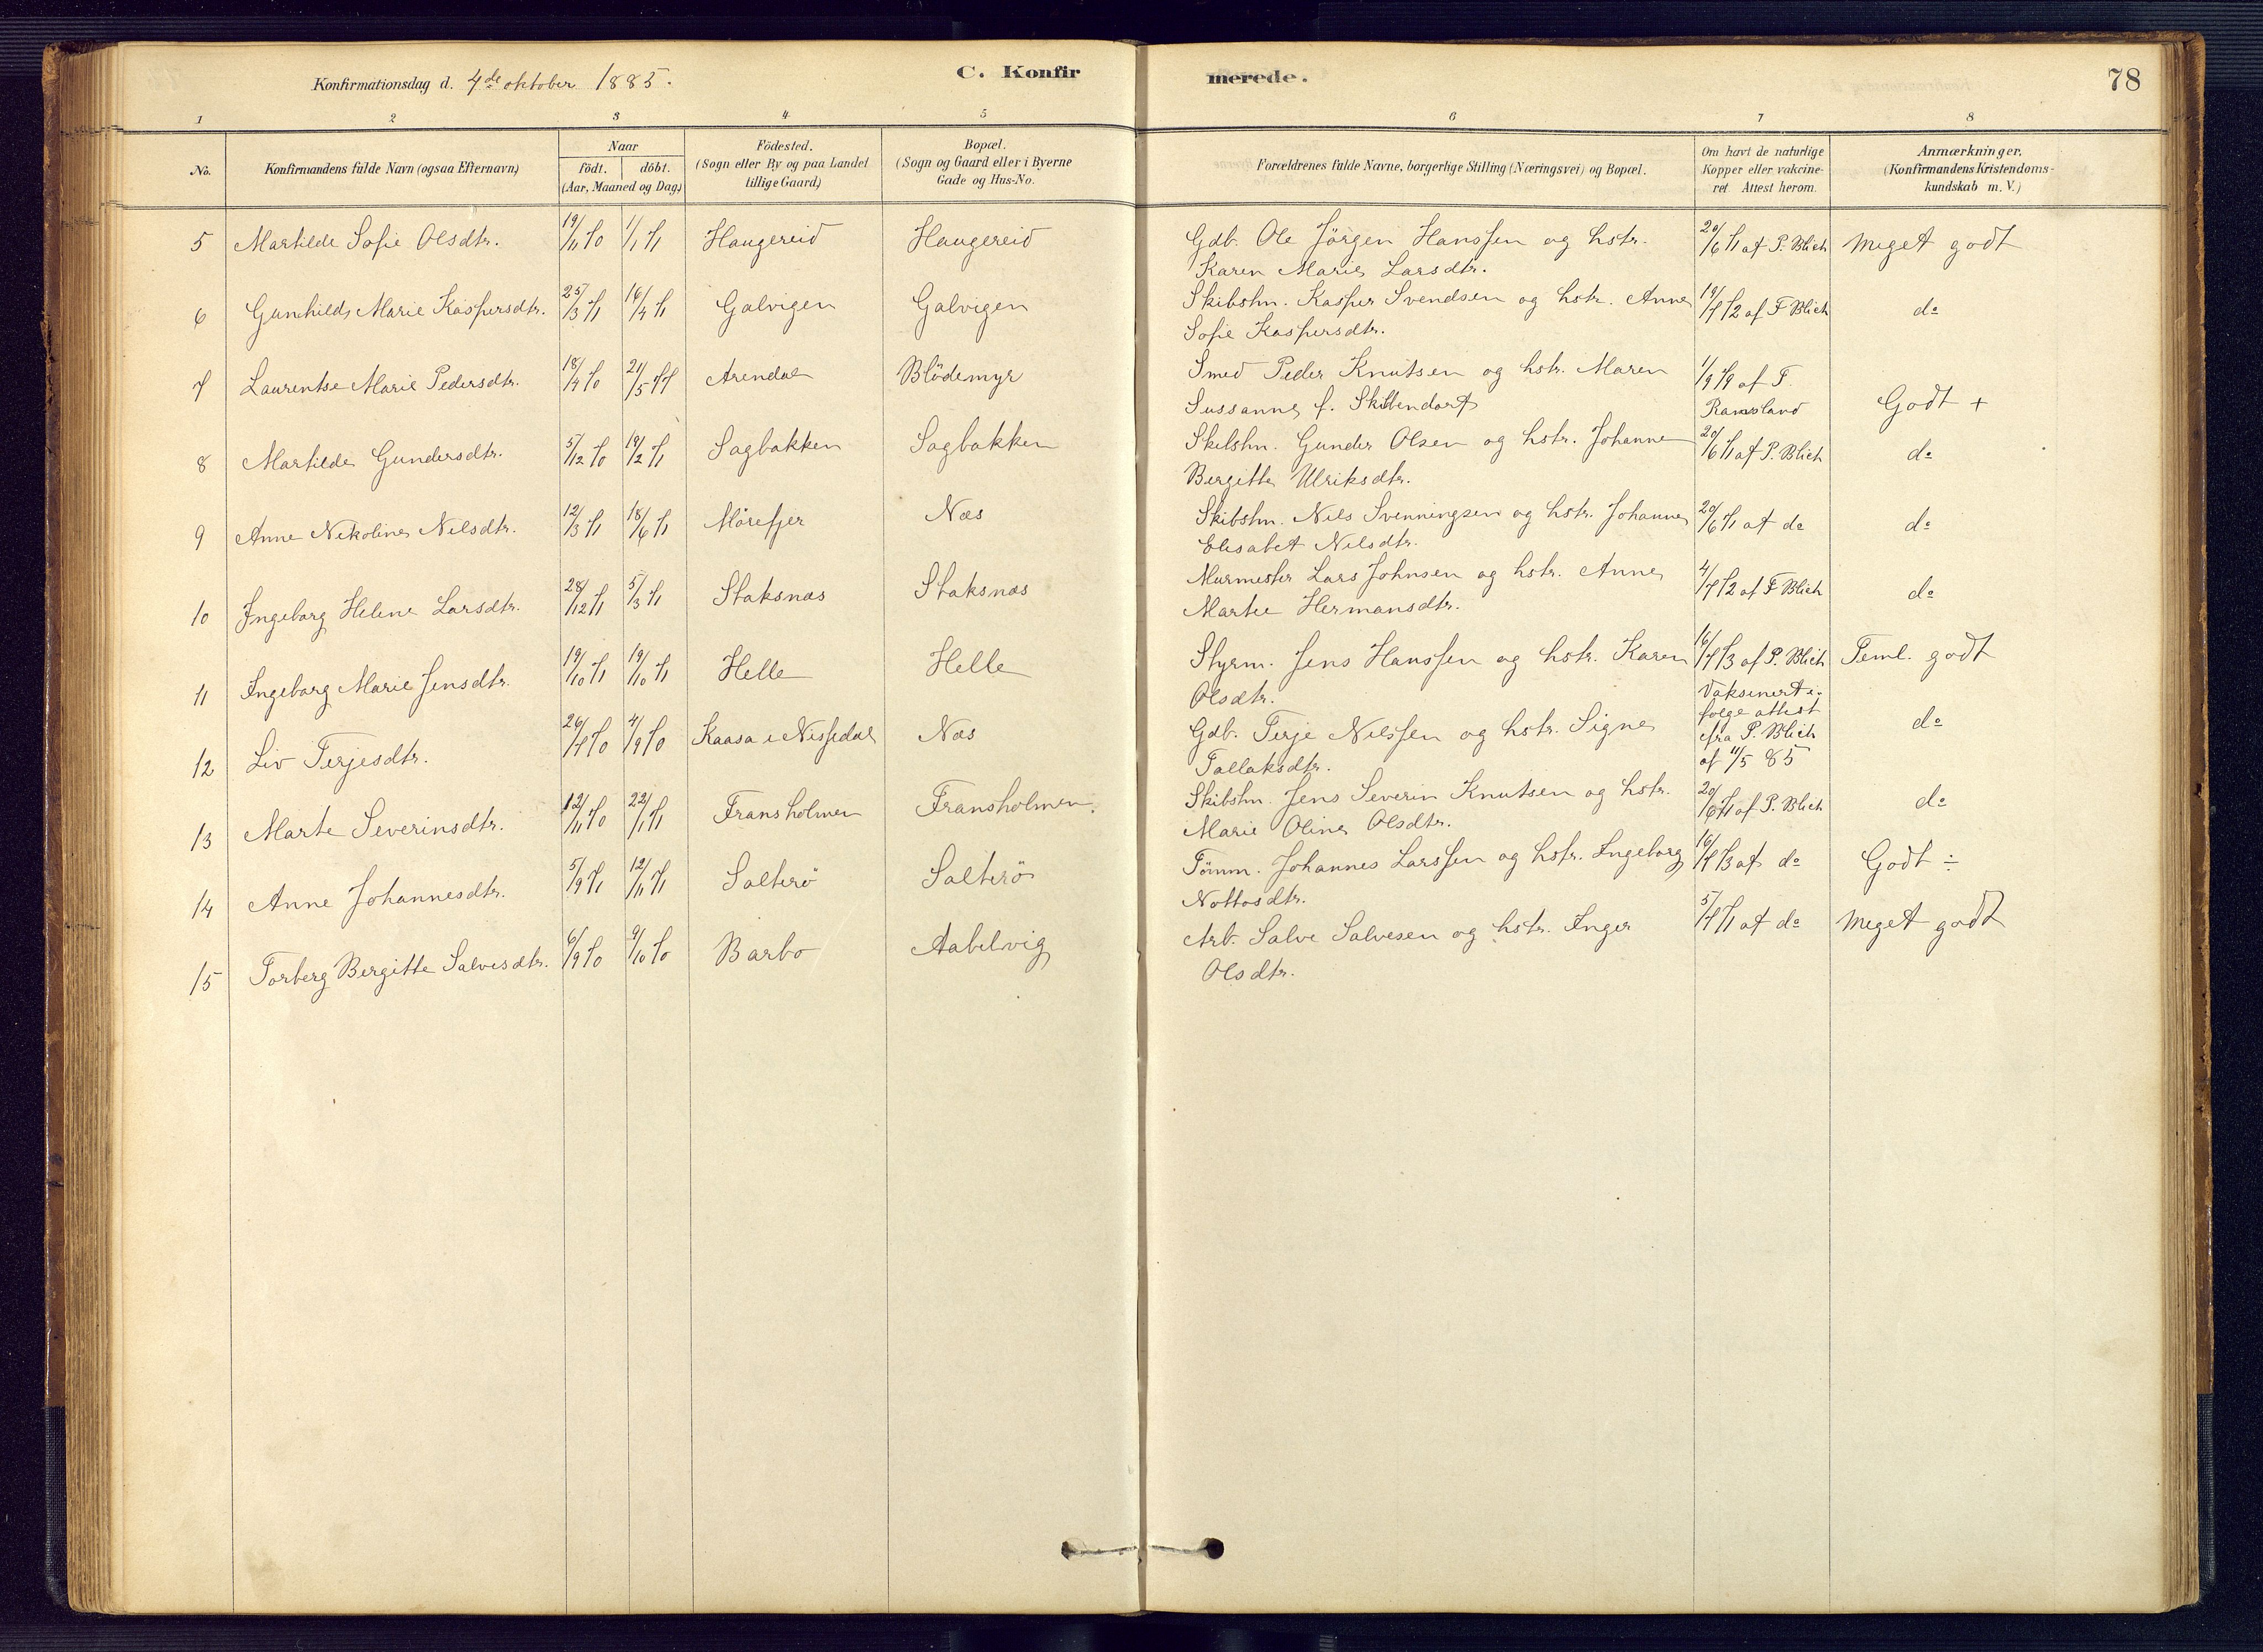 Konfirmationsdag d. 4de oktober 1885.
C. Konfirmerede.
78
1 2 3 4 5 6 7 8
No.
Konfirmandens fulde Navn (ogsaa Efternavn)
Naar
födt. döbt.
(Aar, Maaned og Dag.)
Födested.
(Sogn eller By og paa Landet
tillige Gaard)
Bopæl.
(Sogn og Gaard eller i Byerne
Gade og Hus-No.
Forældrenes fulde Navne, borgerlige Stilling (Næringsvei) og Bopæl.
Om havt de naturlige
Kopper eller vakcine-
ret. Attest herom.
Anmærkninger.
(Konfirmandens Kristendoms-
kundskab m. V.)
5 Martilde Sofie Olsdtr. 19/11 70 1/1 71 Haugereid Haugereid Gdb. Ole Jörgen Hanssen og hstr. 20/6 71 af P. Blich Meget godt
Karen Marie Larsdtr.
6 Gunhild Marie Kaspersdtr. 25/3 71 16/4 71 Galvigen Galvigen Skibstm. Kasper Svendsen og hstr. Anne 19/7 72 af F Blich do
Sofie Kaspersdtr.
7 Laurentse Marie Pedersdtr. 18/4 70 21/5 77 Arendal Blödemyr Smed Peder Knutsen og hstr. Maren 1/9 79 af F.
Sussanne f. Skiltendorf Ramsland Godt +
8 Martilde Gundersdtr. 5/12 70 19/2 71 Sagbakken Sagbakken Skibstm. Gunder Olsen og hstr. Johanne 20/6 71 af P. Blich do
Bergitte Ulriksdtr.
9 Anne Nikoline Nilsdtr. 12/3 71 18/6 71 Mörefjer Næs Skibstm. Nils Svenningsen og hstr. Johanne 20/6 71 af do do
Elisabet Nilsdtr.
10 Ingeborg Helene Larsdtr. 28/12 71 5/3 71 Staksnæs Staksnæs Murmester Lars Johnsen og hstr. Anne 4/7 72 af F Blich do
Marthe Hermansdtr.
11 Ingeborg Marie Jensdtr. 19/10 71 19/10 71 Helle Helle Styrm. Jens Hanssen og hstr. Karen 16/7 73 af P. Blich Teml. godt
Olsdtr.
12 Liv Terjesdtr. 26/7 70 4/9 70 Kaasa i Nissedal Næs Gdb. Terje Nilssen og hstr. Signe Vaksinert i-
følge attest
fra P. Blich
af 11/5 85 do
Tallaksdtr.
13 Marte Severinsdtr. 12/11 70 22/1 71 Fransholmen Fransholmen. Skibstm. Jens Severin Knutsen og hstr. 20/6 71 af P. Blich do
Marie Oline Olsdtr.
14 Anne Johannesdtr. 5/9 71 12/11 71 Salterö Salterö Tömm. Johannes Larssen og hstr. Ingeborg 16/7 73 af do Godt ÷
Nottosdtr.
15 Torberg Bergitte Salvesdtr. 6/9 70 9/10 70 Barbo Aabelvig Arb. Salve Salvesen og hstr. Inger 5/7 71 af do Meget godt
Olsdtr.